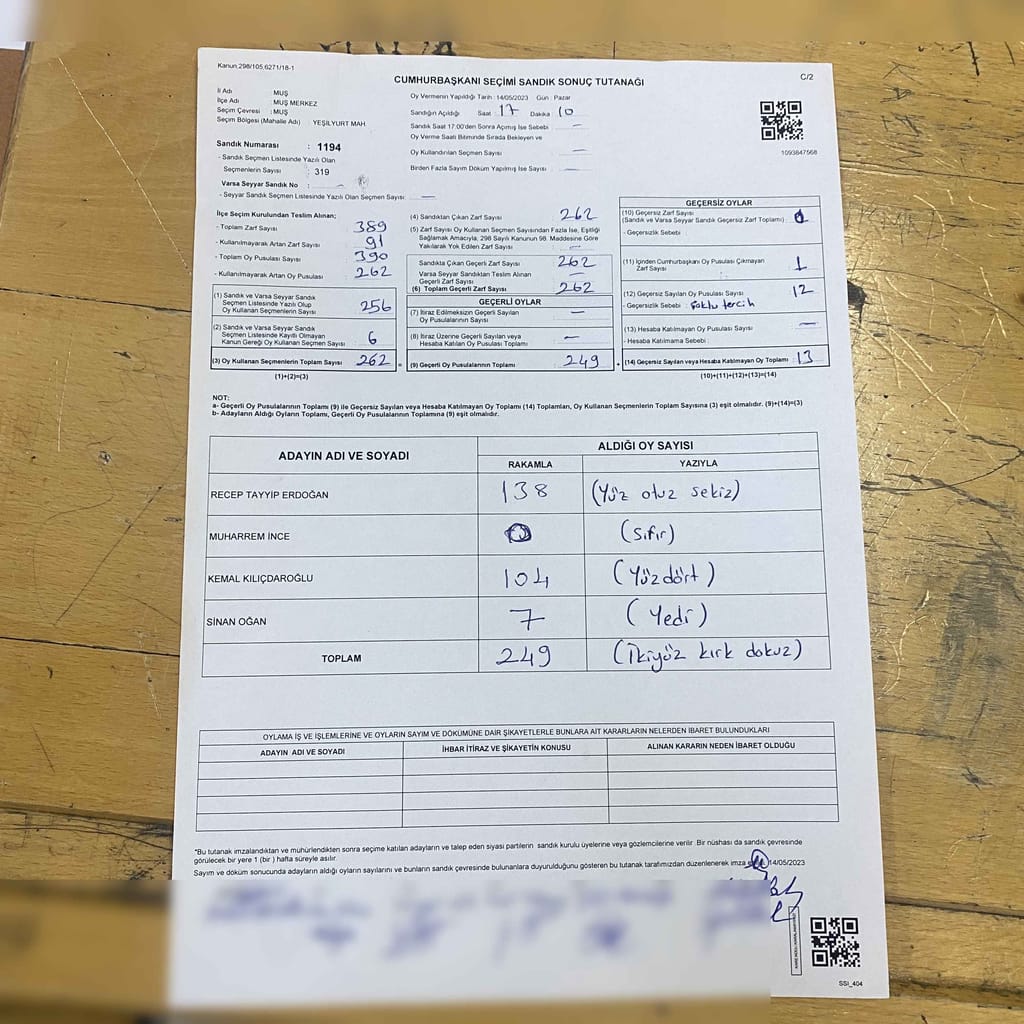 Kanun:298/105,6271/18-1
C/2
CUMHURBAŞKANI SEÇİMİ SANDIK SONUÇ TUTANAĞI
İl Adı : MUŞ
İlçe Adı : MUŞ MERKEZ
Seçim Çevresi : MUŞ
Seçim Bölgesi (Mahalle Adı) : YEŞİLYURT MAH.
Sandık Numarası : 1194
- Sandık Seçmen Listesinde Yazılı Olan
Seçmenlerin Sayısı : 319
Varsa Seyyar Sandık No : —
- Seyyar Sandık Seçmen Listesinde Yazılı Olan Seçmen Sayısı: —
Oy Vermenin Yapıldığı Tarih :14/05/2023 Gün : Pazar
Sandığın Açıldığı Saat 17 Dakika 10
Sandık Saat 17:00'den Sonra Açımış İse Sebebi —
Oy Verme Saati Bitiminde Sırada Bekleyen ve
Oy Kullandırılan Seçmen Sayısı —
Birden Fazla Sayım Döküm Yapılmış İse Sayısı —
1093847568
İlçe Seçim Kurulundan Teslim Alınan;
- Toplam Zarf Sayısı 389
- Kullanılmayarak Artan Zarf Sayısı 91
- Toplam Oy Pusulası Sayısı 390
- Kullanılmayarak Artan Oy Pusulası 262
(1) Sandık ve Varsa Seyyar Sandık
Seçmen Listesinde Yazılı Olup
Oy Kullanan Seçmenlerin Sayısı 256
(2) Sandık ve Varsa Seyyar Sandık
Seçmen Listesinde Kayıtlı Olmayan
Kanun Gereği Oy Kullanan Seçmen Sayısı 6
(3) Oy Kullanan Seçmenlerin Toplam Sayısı 262
(1)+(2)=(3)
(4) Sandıktan Çıkan Zarf Sayısı 262
(5) Zarf Sayısı Oy Kullanan Seçmen Sayısından Fazla İse, Eşitliği
Sağlamak Amacıyla, 298 Sayılı Kanunun 98. Maddesine Göre
Yakılarak Yok Edilen Zarf Sayısı —
Sandıkta Çıkan Geçerli Zarf Sayısı 262
Varsa Seyyar Sandıktan Teslim Alınan
Geçerli Zarf Sayısı —
(6) Toplam Geçerli Zarf Sayısı 262
GEÇERLİ OYLAR
(7) İtiraz Edilmeksizin Geçerli Sayılan
Oy Pusulalarının Sayısı —
(8) İtiraz Üzerine Geçerli Sayılan veya
Hesaba Katılan Oy Pusulası Toplamı —
= (9) Geçerli Oy Pusulalarının Toplamı 249
GEÇERSİZ OYLAR
(10) Geçersiz Zarf Sayısı
(Sandık ve Varsa Seyyar Sandık Geçersiz Zarf Toplamı)
- Geçersizlik Sebebi
(11) İçinden Cumhurbaşkanı Oy Pusulası Çıkmayan
Zarf Sayısı 1
(12) Geçersiz Sayılan Oy Pusulası Sayısı 12
- Geçersizlik Sebebi : Çoklu tercih
(13) Hesaba Katılmayan Oy Pusulası Sayısı —
- Hesaba Katılmama Sebebi :
+ (14) Geçersiz Sayılan veya Hesaba Katılmayan Oy Toplamı 13
(10)+(11)+(12)+(13)=(14)
NOT:
a- Geçerli Oy Pusulalarının Toplamı (9) ile Geçersiz Sayılan veya Hesaba Katılmayan Oy Toplamı (14) Toplamları, Oy Kullanan Seçmenlerin Toplam Sayısına (3) eşit olmalıdır. (9)+(14)=(3)
b- Adayların Aldığı Oyların Toplamı, Geçerli Oy Pusulalarının Toplamına (9) eşit olmalıdır.
ADAYIN ADI VE SOYADI ALDIĞI OY SAYISI
RAKAMLA YAZIYLA
RECEP TAYYİP ERDOĞAN 138 (Yüz otuz sekiz)
MUHARREM İNCE 0 (Sıfır)
KEMAL KILIÇDAROĞLU 104 (Yüzdört)
SİNAN OĞAN 7 (Yedi)
TOPLAM 249 (İkiyüz kırk dokuz)
OYLAMA İŞ VE İŞLEMLERİNE VE OYLARIN SAYIM VE DÖKÜMÜNE DAİR ŞİKAYETLERLE BUNLARA AİT KARARLARIN NELERDEN İBARET BULUNDUKLARI
ADAYIN ADI VE SOYADI İHBAR İTİRAZ VE ŞİKAYETİN KONUSU ALINAN KARARIN NEDEN İBARET OLDUĞU
*Bu tutanak imzalandıktan ve mühürlendikten sonra seçime katılan adayların ve talep eden siyasi partilerin sandık kurulu üyelerine veya gözlemcilerine verilir. Bir nüshası da sandık çevresinde
görülecek bir yere 1 (bir ) hafta süreyle asılır.
Sayım ve döküm sonucunda adayların aldığı oyların sayılarını ve bunların sandık çevresinde bulunanlara duyurulduğunu gösteren bu tutanak tarafımızdan düzenlenerek imza 14/05/2023
SSI_404